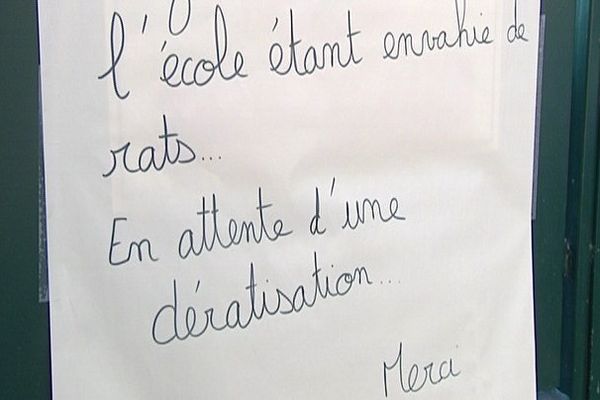 l'école étant envahie de
rats...
En attente d'une
dératisation...
Merci